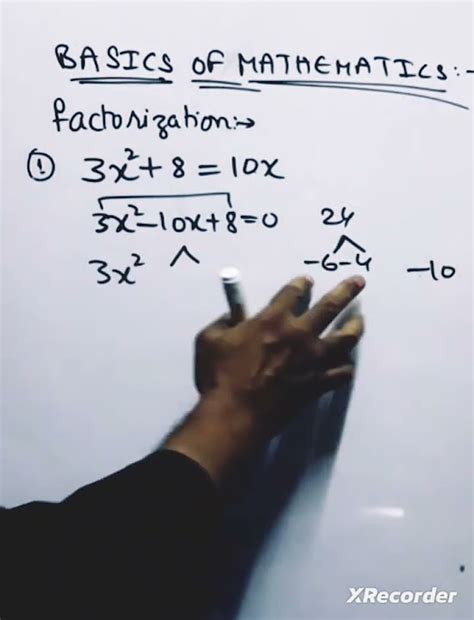 BASICS OF MATHEMATICS:-
factorization:→
① 3x²+8=10x
3x²-10x+8=0 24
3x² ^ -6-4 -10
XRecorder